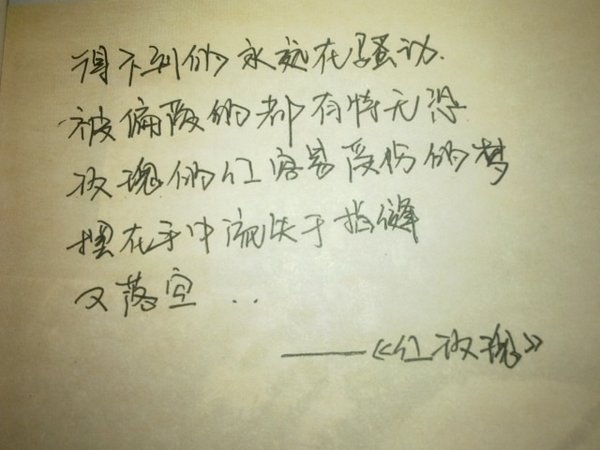 得不到的永远在骚动.
被偏爱的都有恃无恐
玫瑰的红容易受伤的梦
握在手中流失于指缝
又落空..
——《红玫瑰》